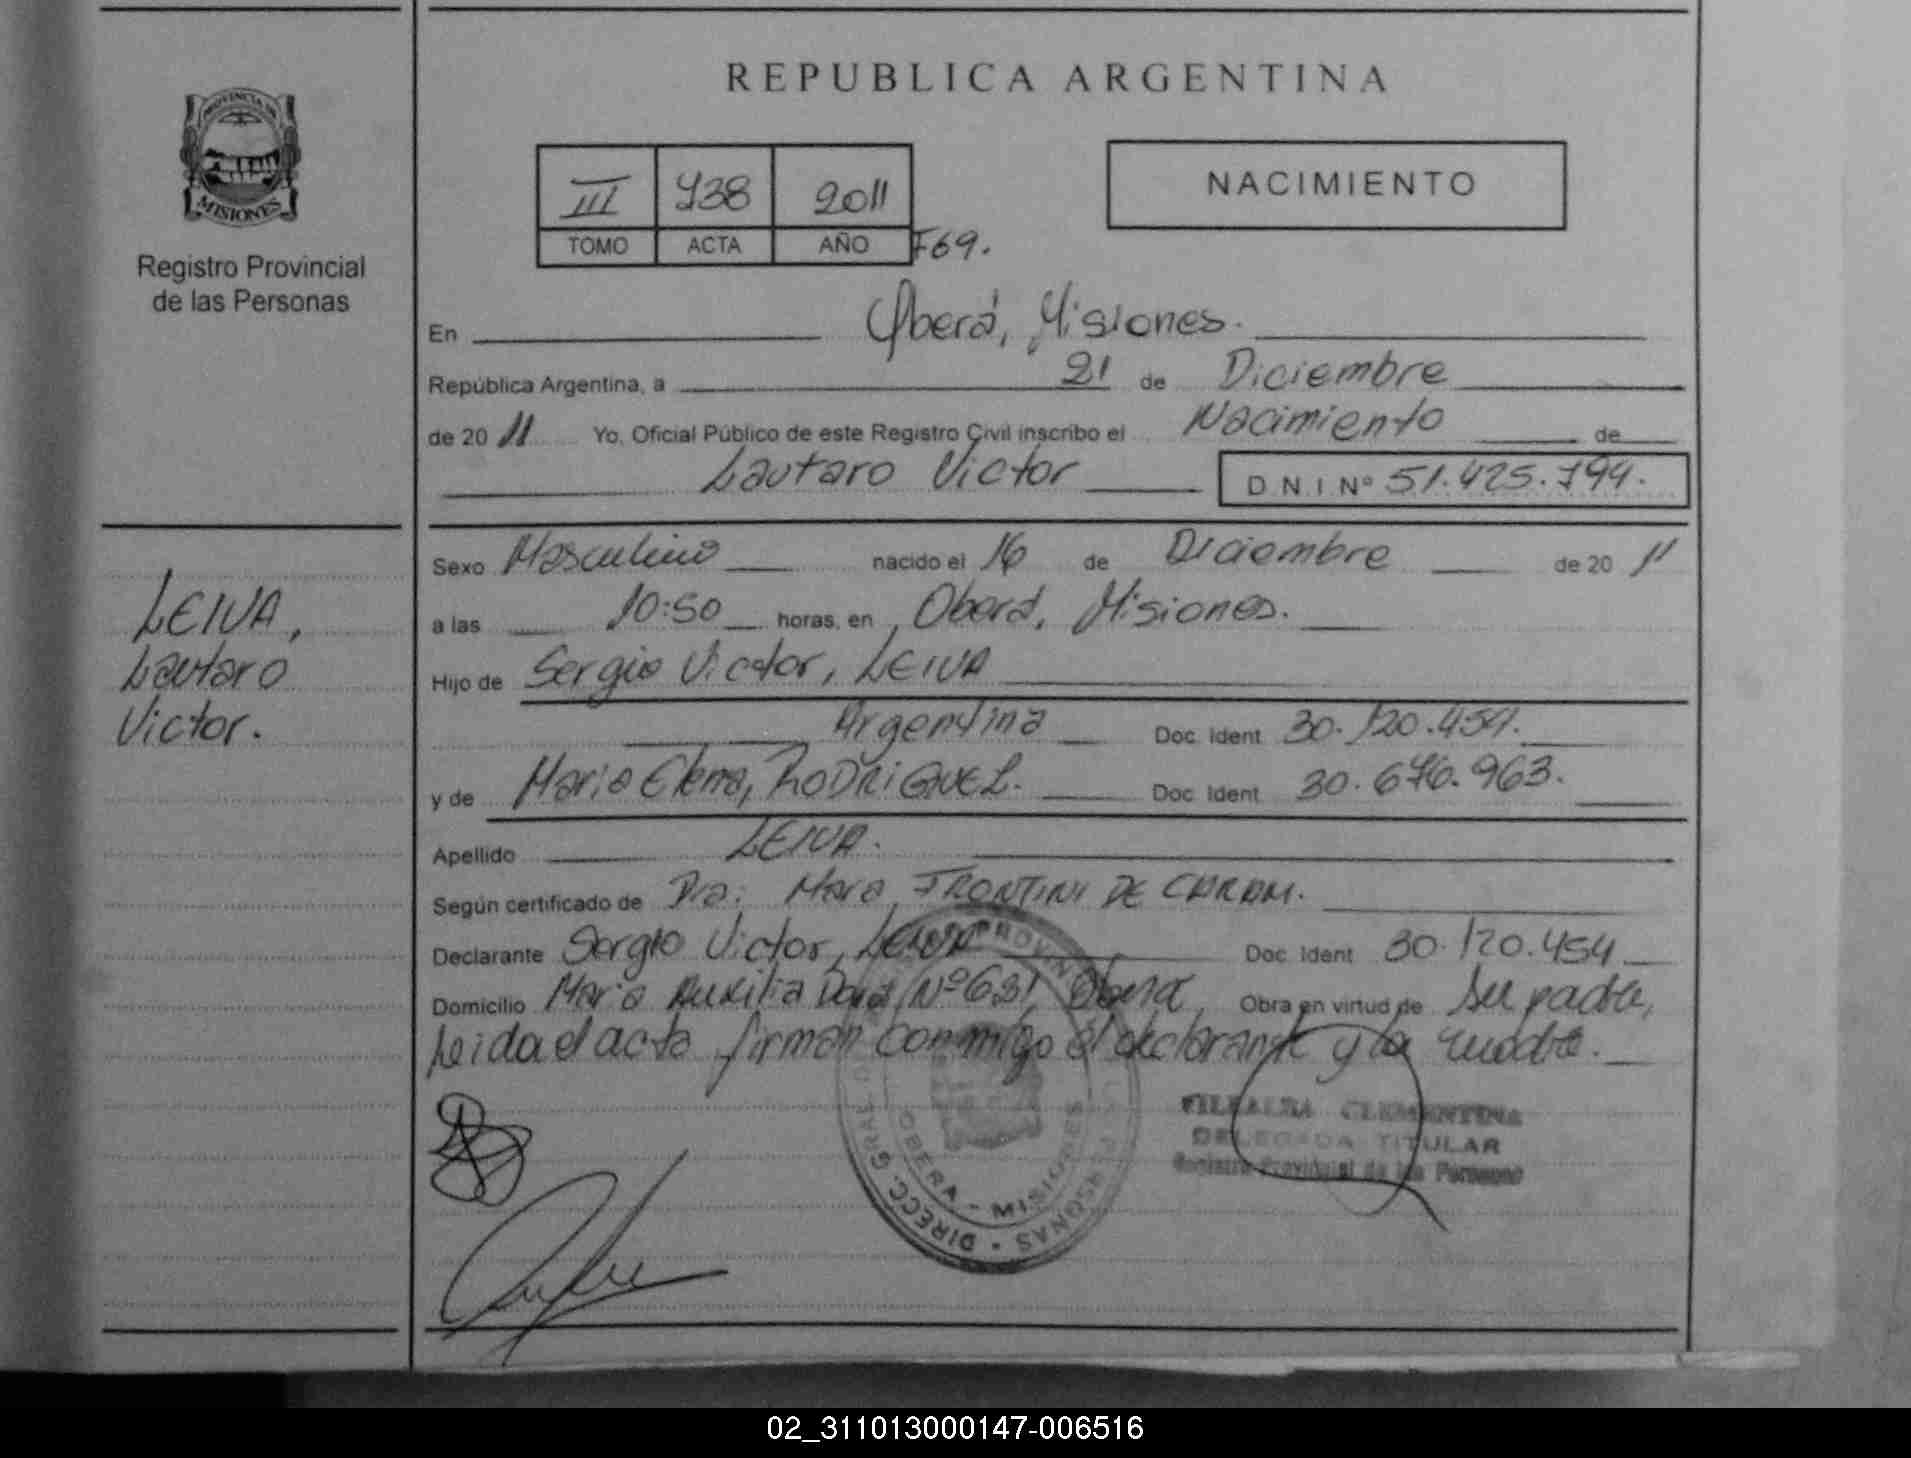 REPUBLICA ARGENTINA
PROVINCIA DE
MISIONES
Registro Provincial
de las Personas
III 738 2011
TOMO ACTA AÑO F69.
NACIMIENTO
En Oberá, Misiones.
República Argentina, a 21 de Diciembre
de 20 11 Yo, Oficial Público de este Registro Civil inscribo el Nacimiento de
Lautaro Victor D.N.I Nº 51.425.794.
Sexo Masculino nacido el 16 de Diciembre de 20 11
a las 10:50 horas, en Oberá, Misiones.
Hijo de Sergio Victor, LEIVA
Argentina Doc. Ident 30.120.454.
y de Maria Elena, RODRIGUEZ. Doc. Ident 30.676.963.
Apellido LEIVA.
Según certificado de Dra: Mara FRONTINI DE
Declarante Sergio Victor, Leiva Doc. Ident 30.120.454
Domicilio Maria Auxiliadora Nº631, Oberá, Obra en virtud de Su padre,
Leida el acta firman conmigo el declarante y la madre.
LEIVA,
Lautaro
Victor.
DIRECC. GRAL. PERSONAS
OBERA - MISIONES
CLEMENTINA
DELEGADA TITULAR
Registro Provincial de las Personas
02_311013000147-006516